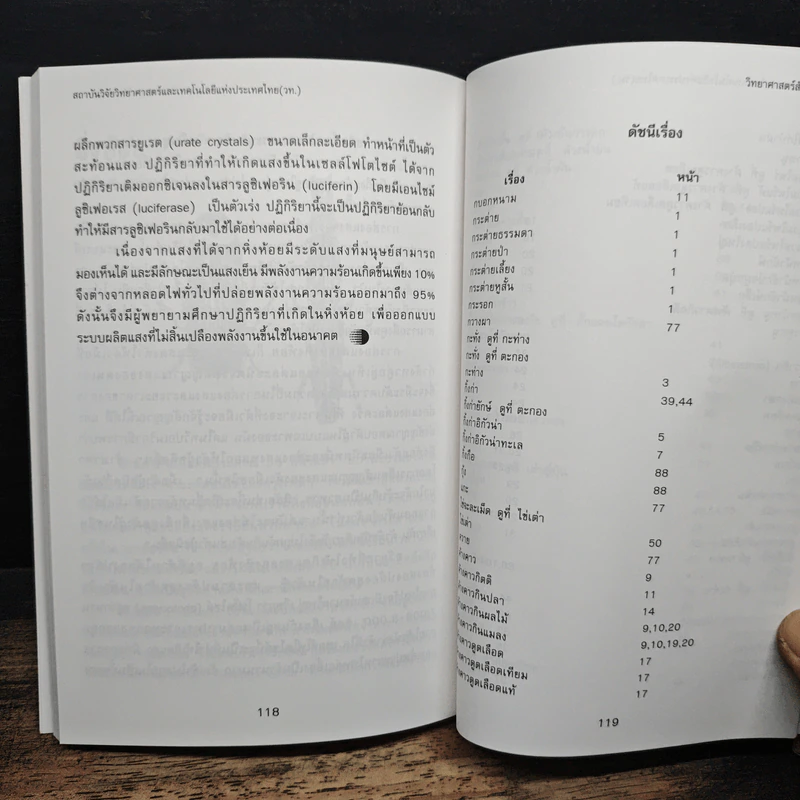 สถาบันวิจัยวิทยาศาสตร์และเทคโนโลยีแห่งประเทศไทย(วท.)
ผลึกพวกสารยูเรต (urate crystals) ขนาดเล็กละเอียด ทำหน้าที่เป็นตัว
สะท้อนแสง ปฏิกิริยาที่ทำให้เกิดแสงขึ้นในเซลล์โฟโตไซต์ ได้จาก
ปฏิกิริยาเติมออกซิเจนลงในสารลูซิเฟอริน (luciferin) โดยมีเอนไซม์
ลูซิเฟอเรส (luciferase) เป็นตัวเร่ง ปฏิกิริยานี้จะเป็นปฏิกิริยาย้อนกลับ
ทำให้มีสารลูซิเฟอรินกลับมาใช้ได้อย่างต่อเนื่อง
เนื่องจากแสงที่ได้จากหิ่งห้อยมีระดับแสงที่มนุษย์สามารถ
มองเห็นได้ และมีลักษณะเป็นแสงเย็น มีพลังงานความร้อนเกิดขึ้นเพียง 10%
จึงต่างจากหลอดไฟทั่วไปที่ปล่อยพลังงานความร้อนออกมาถึง 95%
ดังนั้นจึงมีผู้พยายามศึกษาปฏิกิริยาที่เกิดในหิ่งห้อย เพื่อออกแบบ
ระบบผลิตแสงที่ไม่สิ้นเปลืองพลังงานขึ้นใช้ในอนาคต
118
วิทยาศาสตร์สั
ดัชนีเรื่อง
เรื่อง หน้า
กบอกหนาม 11
กระต่าย 1
กระต่ายธรรมดา 1
กระต่ายป่า 1
กระต่ายเลี้ยง 1
กระต่ายหูสั้น 1
กระรอก 1
กวางผา 77
กะทั่ง ดูที่ กะท่าง
กะทั่ง ดูที่ ตะกอง
กะท่าง 3
กิ้งก่า 39,44
กิ้งก่ายักษ์ ดูที่ ตะกอง
กิ้งก่าอิกัวน่า 5
กิ้งก่าอิกัวน่าทะเล 7
กิ้งกือ 88
กุ้ง 88
แกะ 77
ไข่จะละเม็ด ดูที่ ไข่เต่า
ไข่เต่า 50
ควาย 77
ค้างคาว 9
ค้างคาวกิตติ 11
ค้างคาวกินปลา 14
ค้างคาวกินผลไม้ 9,10,20
ค้างคาวกินแมลง 9,10,19,20
ค้างคาวดูดเลือด 17
ค้างคาวดูดเลือดเทียม 17
ค้างคาวดูดเลือดแท้ 17
119